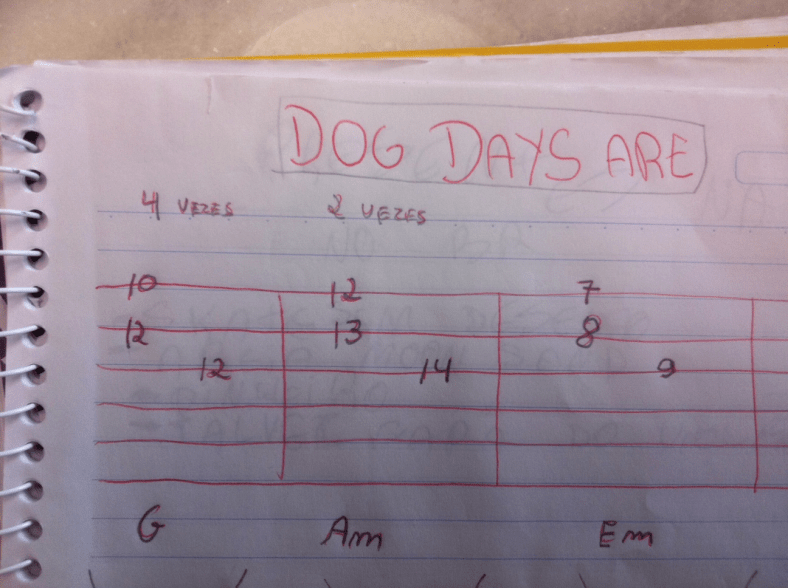 DOG DAYS ARE
4 VEZES 2 VEZES
10 12 7
12 13 8
12 14 9
G Am Em